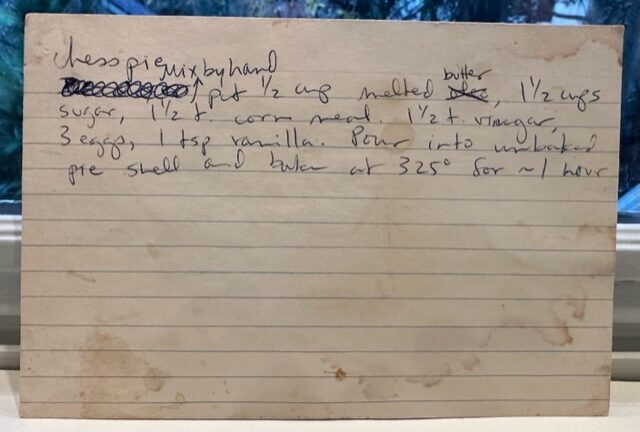 chess pie
mix by hand
put 1/2 cup melted butter, 1 1/2 cups
sugar, 1 1/2 t. corn meal. 1 1/2 t. vinegar,
3 eggs, 1 tsp vanilla. Pour into unbaked
pie shell and bake at 325° for ~1 hour